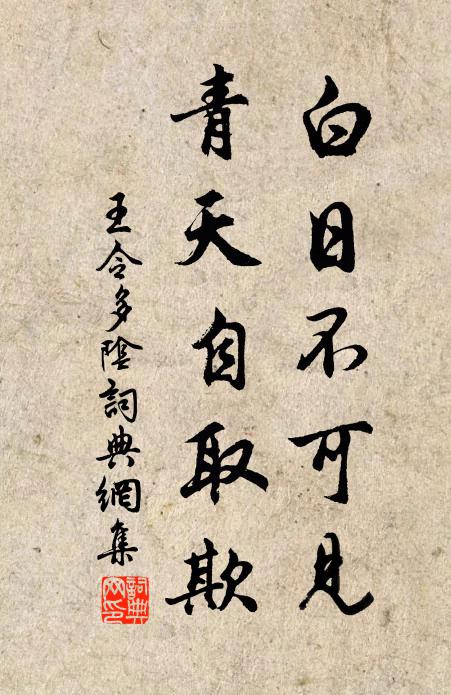 白日不可見
青天自取欺
王令多陰詞典網集
詞典網印